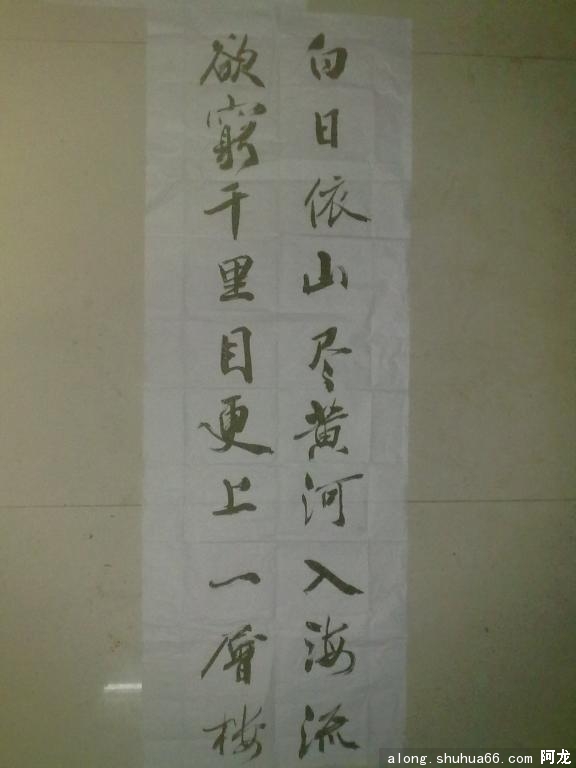 白日依山尽黄河入海流
欲窮千里目更上一層楼
along.shuhua66.com 阿龙